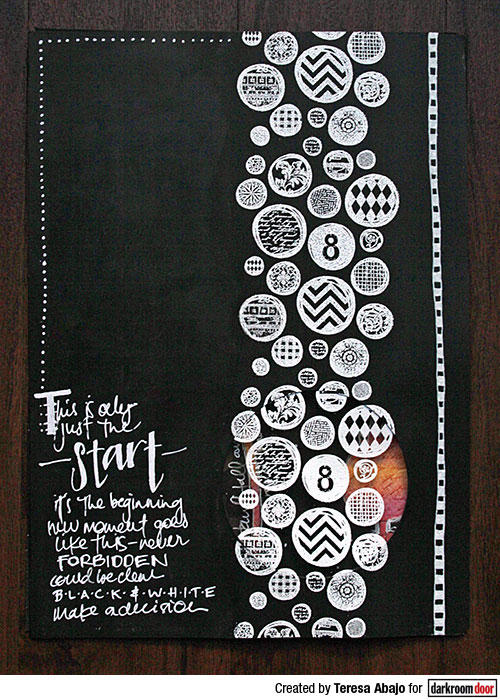 This is only
just the
start
it's the beginning
new moment goes
like this-never
FORBIDDEN
could be clear
B·L·A·C·K & W·H·I·T·E
make a decision
8
8
Created by Teresa Abajo for darkroomdoor